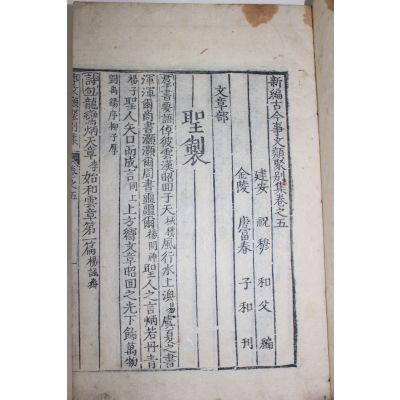 新編古今事文類聚別集卷之五
建安 祝穆 和父 編
金陵 唐富春 子和 刊
文章部
聖製
群書要語倬彼雲漢昭回于天棫樸風行水上渙易虞夏之書
渾渾爾商書灝灝爾周書噩噩爾楊問神聖人之言炳若丹青
楊子聖人矢口而成言同上上方嚮文章昭回之光下飾萬物
劉禹錫序柳子厚
詩句龍鸞炳天章 始和雲章第一篇楊誠齋